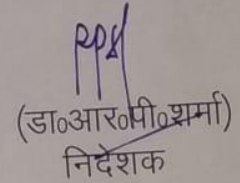 (डा०आर०पी०शर्मा)
निदेशक